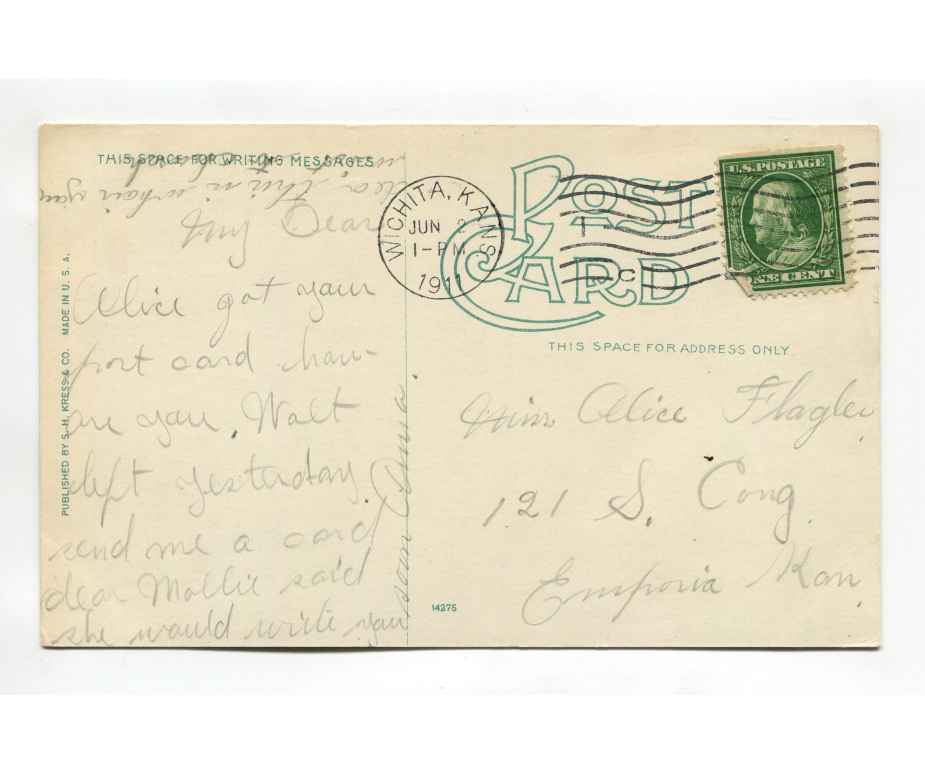 THIS SPACE FOR WRITING MESSAGES
My Dear
Alice got your
post card how
are you. Walt
left yesterday.
send me a card
dear Mollie said
she would write you
soon
PUBLISHED BY S. H. KRESS & CO. MADE IN U. S. A.
POST
CARD
WICHITA, KANS
JUN 2
1-PM
1911
U.S. POSTAGE
CENT
THIS SPACE FOR ADDRESS ONLY
Miss Alice Flagler
121 S. Cong
Emporia Kan
14275